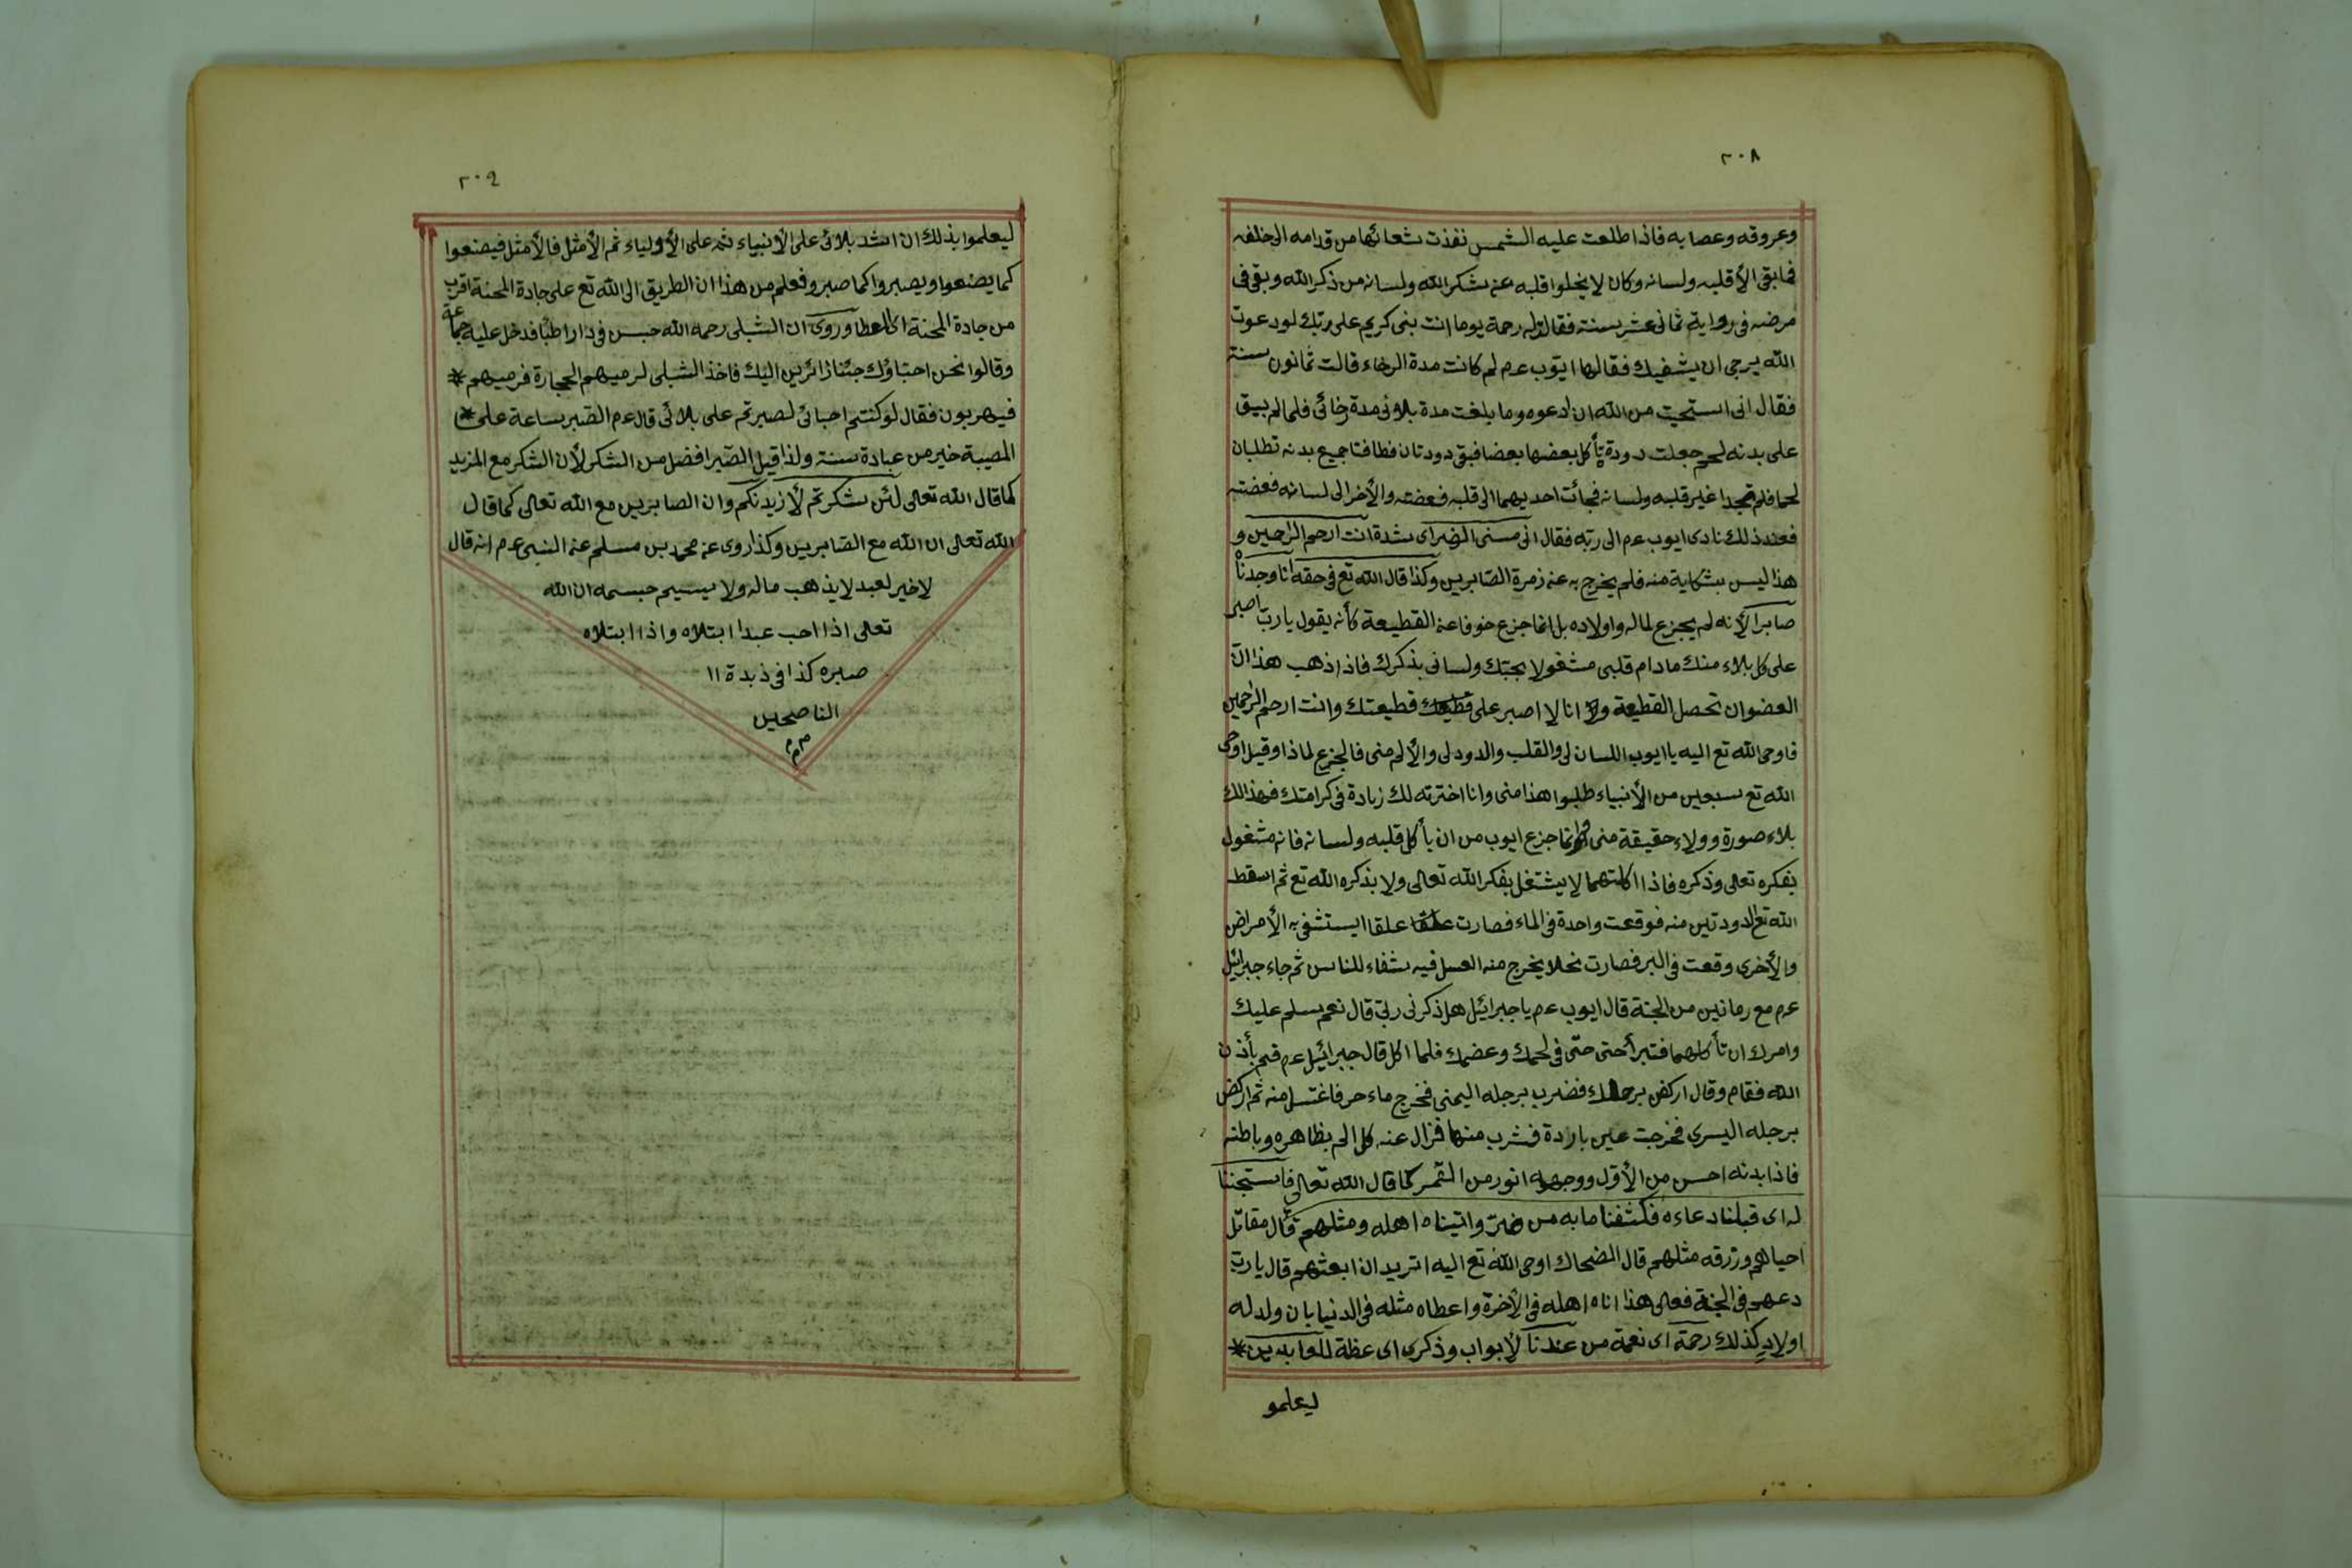 ٢٠٨
وعروقه وعصابه فاذا طلعت عليه الشمس نفذت شعائها من قدامه الى خلفه
فما بقى الأ قلبه ولسانه وكان لا يخلوا قلبه عن شكر الله ولسانه من ذكر الله وبقى فى
مرضه فى رواية ثمانى عشر سنة فقالت له رحمة يوما انت بنى كريم على ربك لو دعوت
الله يرجى ان يشفيك فقال لها ايوب عم لم كانت مدة الرخاء قالت ثمانون سنة
فقال انى استحيت من الله ان ادعوه وما بلغت مدة بلائى مدة رخائى فلما لم يبق
على بدنه لحم جعلت دودة يأكل بعضها بعضا فبقى دودتان فطافتا جميع بدنه تطلبان
لحما فلم تجدا غير قلبه ولسانه فجائت احديهما الى قلبه فعضته والأخر الى لسانه فعضته
فعند ذلك نادى ايوب عم الى ربه فقال انى مسنى الضر اى شدة انت ارحم الراحمين و
هذا ليس بشكاية منه فلم يخرج به عن زمرة الصابرين وكذا قال الله تع فى حقه انا وجدناه
صابرا لأنه لم يجزع لماله واولاده بل انما جزع خوفا عن القطيعة كأنه يقول يا رب اصبر
على كل بلاء منك ما دام قلبى مشغولا بحبتك ولسانى بذكرك فاذا ذهب هذا ان
العضوان تحصل القطيعة وانا لا اصبر على قطيعتك وانت ارحم الراحمين
فاوحى الله تع اليه يا ايوب اللسان لى والقلب والدود لى والألم منى فالجزع لماذا وقيل اوحى
الله تع سبعين من الأنبياء طلبوا هذا منى وانا اخترته لك زيادة فى كرامتك فهذا لك
بلاء صورة وولاء حقيقة منى وانما جزع ايوب من ان يأكل قلبه ولسانه فانه مشغول
بفكره تعالى وذكره فاذا اكلتهما لا يشتغل بفكر الله تعالى ولا بذكره الله تع ثم اسقط
الله تع الدودتين منه فوقعت واحدة فى الماء فصارت علقا ايستشفى به الأمراض
والأخرى وقعت فى البر فصارت نحلا يخرج منه العسل فيه شفاء للناس ثم جاء جبرائيل
عم مع رمانين من الجنة قال ايوب عم يا جبرائيل هل ذكرنى ربى قال نعم يسلم عليك
وامرك ان تأكلهما فتبرأ حتى حتى فى لحمك وعضمك فلما اكل قال جبرائيل عم قم بأذن
الله فقام وقال اركض برجلك فضرب برجله اليمنى فخرج ماء حر فاغتسل منه ثم اركض
برجله اليسرى فخرجت عين باردة فشرب منها فزال عنه كل الم بظاهره وباطنه
فاذا بدنه احسن من الأول ووجهه انور من القمر كما قال الله تعالى فاستجبنا
له اى قبلنا دعاءه فكشفنا ما به من ضر واتيناه اهله ومثلهم قال مقاتل
احيالهم ورزقه مثلهم قال الضحاك اوحى الله تع اليه اتريد ان ابعثهم قال يا رب
دعهم فى الجنة فعلى هذا اتاه اهله فى الأخرة واعطاه مثله فى الدنيا بان ولد له
اولاد كذلك رحمة اى نعمة من عندنا لأبواب وذكرى اى عظة للعابدين *
ليعلمو
٢٠٩
ليعلموا بذلك ان اشد بلائى على الأنبياء ثم على الأولياء ثم الأمثل فالأمثل فيصنعوا
كما يصنعوا ويصبروا كما صبرو فعلم من هذا ان الطريق الى الله تع على جادة المحنة اقرب
من جادة المحنة اى العطا وروى ان الشبلى رحمه الله حبس فى دار اطبا فدخل عليه جماعة
وقالوا نحن احباؤك جئنا زائرين اليك فاخذ الشبلى لرميهم الحجارة فرميهم *
فيهربون فقال لو كنتم احبائى لصبرتم على بلائى قال عم الصبر ساعة على *
المصيبة خير من عبادة سنة ولذا قيل الصبر افضل من الشكر لأن الشكر مع المزيد
كما قال الله تعالى لئن شكرتم لأزيدنكم وان الصابرين مع الله تعالى كما قال
الله تعالى ان الله مع الصابرين وكذا روى عن محمد بن مسلم عن النبى عم انه قال
لا خير لعبد لا يذهب ماله ولا يسيم جسمه ان الله
تعالى اذا احب عبدا ابتلاه واذا ابتلاه
صبره كذا فى ذبدة ١١
الناصحين
م م م